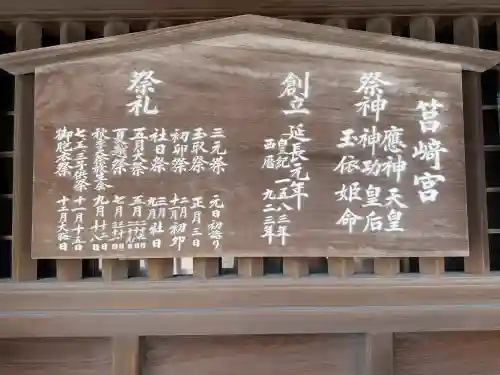 筥崎宮
祭神 應神天皇
神功皇后
玉依姫命
創立 延長元年
皇紀 一五八三年
西暦 九二三年
祭礼
三元祭 元日初詣り
玉取祭 正月三日
初卯祭 二月初卯
社日祭 三月九月社日
五月大祭 五月
夏越祭 七月
秋季大祭放生会 九月
七五三子供祭 十一月十五日
御胞衣祭 十二月大晦日